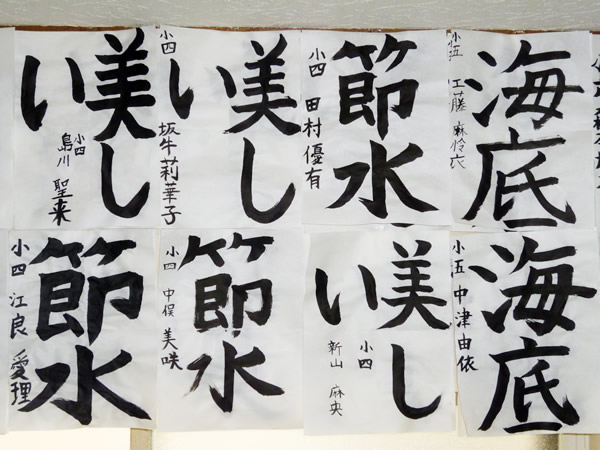 美し
い
小四
島川 聖来
美し
い
小四
坂牛莉華子
節水
小四 田村優有
海底
小五 工藤 麻怜衣
節水
小四 江良 愛理
節水
小四 中俣 美咲
美し
い
小四
新山 麻央
海底
小五 中津由依